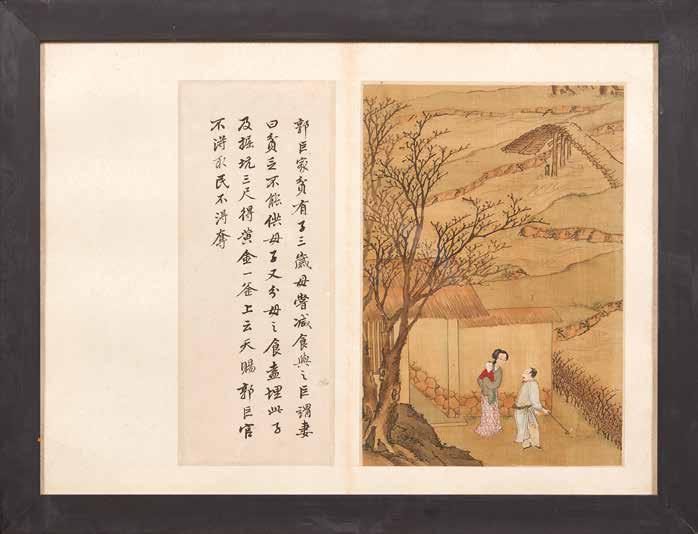 郭巨家貧有子三歲母嘗減食與之巨謂妻
曰貧乏不能供母子又分母之食盍埋此子
及掘坑三尺得黃金一釜上云天賜郭巨官
不得取民不得奪